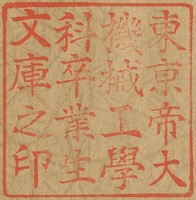 東京帝大
機械工學
科卒業生
文庫之印